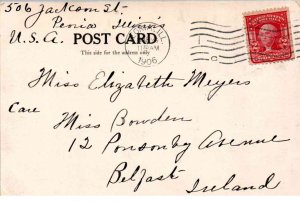 506 Jackson St.
Peoria Illinois
U.S.A. POST CARD
This side for the address only
AM
1906
Miss Elizabeth Meyers
Care
Miss Bowden
12 Ponsonby Avenue
Belfast
Ireland